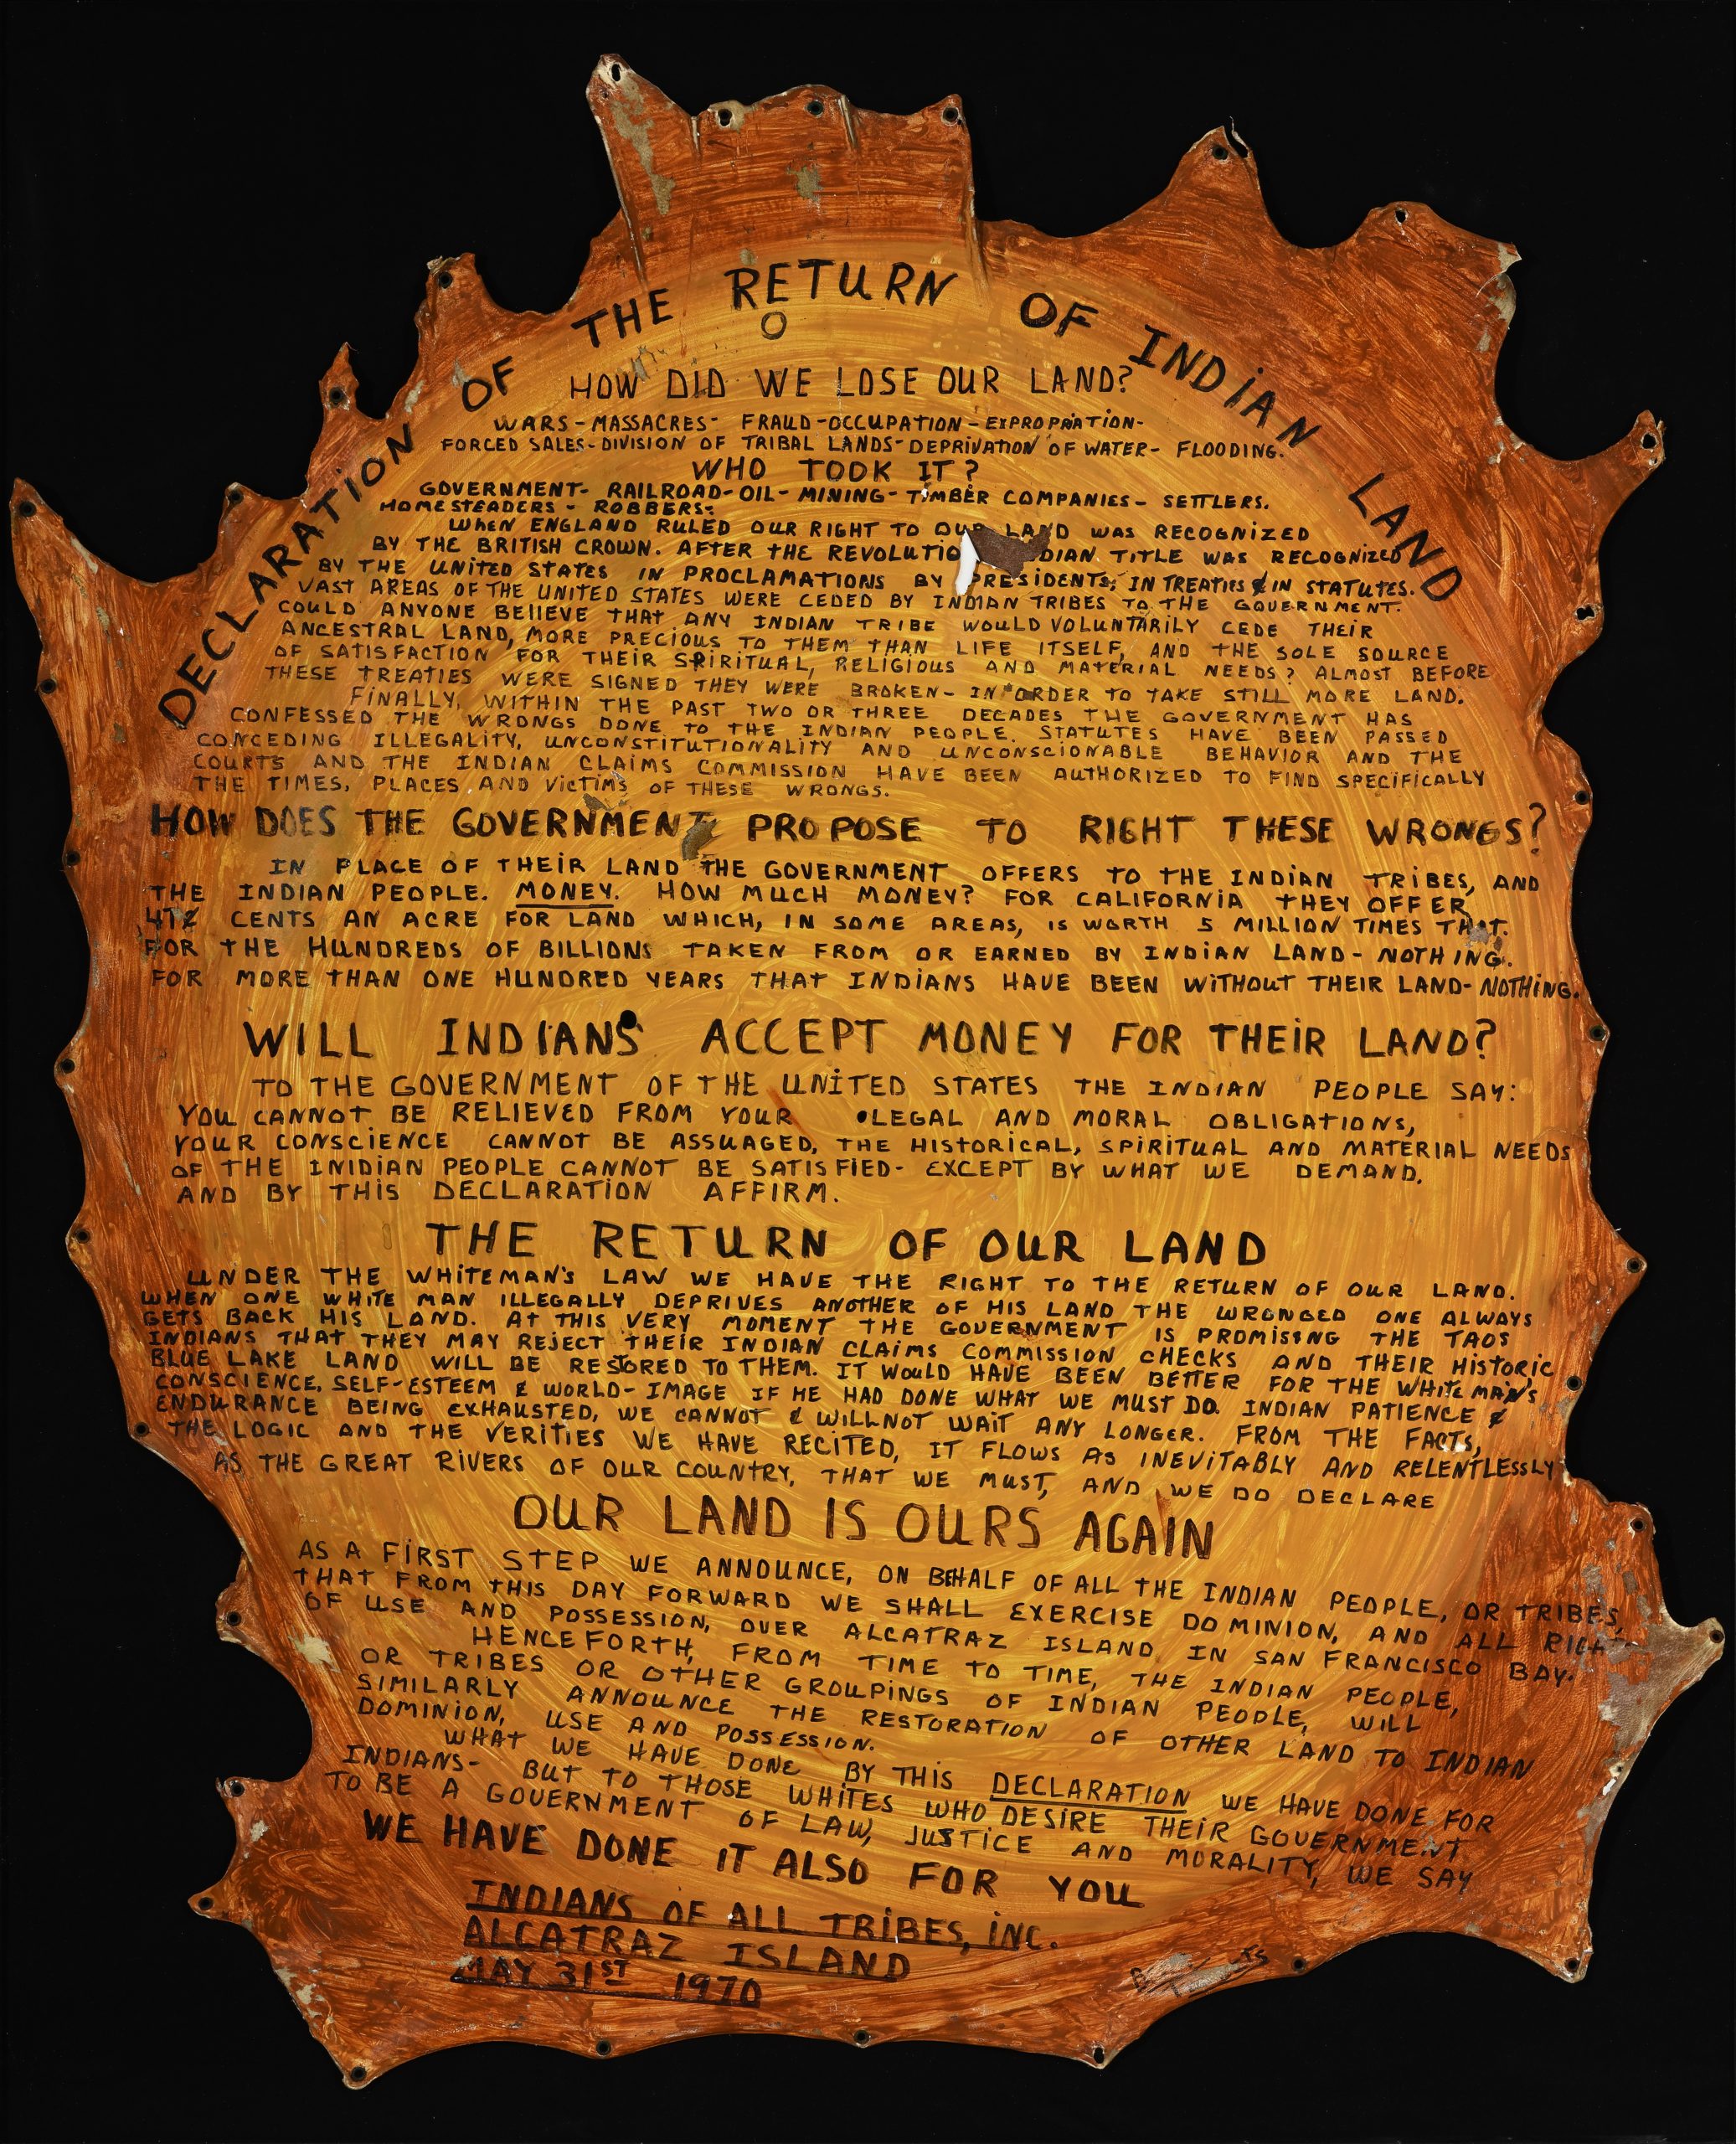 DECLARATION OF THE RETURN OF INDIAN LAND
HOW DID WE LOSE OUR LAND?
WARS-MASSACRES- FRAUD-OCCUPATION-EXPROPRIATION-
FORCED SALES-DIVISION OF TRIBAL LANDS-DEPRIVATION OF WATER- FLOODING.
WHO TOOK IT?
GOVERNMENT- RAILROAD-OIL-MINING-TIMBER COMPANIES- SETTLERS.
HOMESTEADERS - ROBBERS-
WHEN ENGLAND RULED OUR RIGHT TO OUR LAND WAS RECOGNIZED
BY THE BRITISH CROWN. AFTER THE DIAN TITLE WAS RECOGNIZED
BY THE UNITED STATES IN PROCLAMATIONS BY PRESIDENTS, IN TREATIES & IN STATUTES.
VAST AREAS OF THE UNITED STATES WERE CEDED BY INDIAN TRIBES TO THE GOVERNMENT.
COULD ANYONE BELIEVE THAT ANY INDIAN TRIBE WOULD VOLUNTARILY CEDE THEIR
ANCESTRAL LAND, MORE PRECIOUS TO THEM THAN LIFE ITSELF, AND THE SOLE SOURCE
OF SATISFACTION FOR THEIR SPIRITUAL, RELIGIOUS AND MATERIAL NEEDS? ALMOST BEFORE
THESE TREATIES WERE SIGNED THEY WERE BROKEN- IN ORDER TO TAKE STILL MORE LAND.
FINALLY, WITHIN THE PAST TWO OR THREE DECADES THE GOVERNMENT HAS
CONFESSED THE WRONGS DONE TO THE INDIAN PEOPLE. STATUTES HAVE BEEN PASSED
CONCEDING ILLEGALITY, UNCONSTITUTIONALITY AND UNCONSCIONABLE BEHAVIOR AND THE
COURTS AND THE INDIAN CLAIMS COMMISSION HAVE BEEN AUTHORIZED TO FIND SPECIFICALLY
THE TIMES, PLACES AND VICTIMS OF THESE WRONGS.
HOW DOES THE GOVERNMENT PROPOSE TO RIGHT THESE WRONGS?
IN PLACE OF THEIR LAND THE GOVERNMENT OFFERS TO THE INDIAN TRIBES, AND
THE INDIAN PEOPLE. MONEY. HOW MUCH MONEY? FOR CALIFORNIA THEY OFFER
CENTS AN ACRE FOR LAND WHICH, IN SOME AREAS, IS WORTH 5 MILLION TIMES THAT.
FOR THE HUNDREDS OF BILLIONS TAKEN FROM OR EARNED BY INDIAN LAND- NOTHING.
FOR MORE THAN ONE HUNDRED YEARS THAT INDIANS HAVE BEEN WITHOUT THEIR LAND- NOTHING.
WILL INDIANS ACCEPT MONEY FOR THEIR LAND?
TO THE GOVERNMENT OF THE UNITED STATES THE INDIAN PEOPLE SAY:
YOU CANNOT BE RELIEVED FROM YOUR LEGAL AND MORAL OBLIGATIONS,
YOUR CONSCIENCE CANNOT BE ASSUAGED, THE HISTORICAL, SPIRITUAL AND MATERIAL NEEDS
OF THE INIDIAN PEOPLE CANNOT BE SATISFIED- EXCEPT BY WHAT WE DEMAND.
AND BY THIS DECLARATION AFFIRM.
THE RETURN OF OUR LAND
UNDER THE WHITEMAN'S LAW WE HAVE THE RIGHT TO THE RETURN OF OUR LAND.
WHEN ONE WHITE MAN ILLEGALLY DEPRIVES ANOTHER OF HIS LAND THE WRONGED ONE ALWAYS
GETS BACK HIS LAND. AT THIS VERY MOMENT THE GOVERNMENT IS PROMISING THE TAOS
INDIANS THAT THEY MAY REJECT THEIR INDIAN CLAIMS COMMISSION CHECKS AND THEIR HISTORIC
BLUE LAKE LAND WILL BE RESTORED TO THEM. IT WOULD HAVE BEEN BETTER FOR THE WHITEMAN'S
CONSCIENCE, SELF-ESTEEM & WORLD-IMAGE IF HE HAD DONE WHAT WE MUST DO. INDIAN PATIENCE &
ENDURANCE BEING EXHAUSTED, WE CANNOT & WILL NOT WAIT ANY LONGER. FROM THE FACTS,
THE LOGIC AND THE VERITIES WE HAVE RECITED, IT FLOWS AS INEVITABLY AND RELENTLESSLY
AS THE GREAT RIVERS OF OUR COUNTRY, THAT WE MUST, AND WE DO DECLARE
OUR LAND IS OURS AGAIN
AS A FIRST STEP WE ANNOUNCE, ON BEHALF OF ALL THE INDIAN PEOPLE, OR TRIBES,
THAT FROM THIS DAY FORWARD WE SHALL EXERCISE DOMINION, AND ALL
OF USE AND POSSESSION, OVER ALCATRAZ ISLAND IN SAN FRANCISCO BAY.
HENCEFORTH, FROM TIME TO TIME, THE INDIAN PEOPLE,
OR TRIBES OR OTHER GROUPINGS OF INDIAN PEOPLE, WILL
SIMILARLY ANNOUNCE THE RESTORATION OF OTHER LAND TO INDIAN
DOMINION, USE AND POSSESSION.
WHAT WE HAVE DONE BY THIS DECLARATION WE HAVE DONE FOR
INDIANS- BUT TO THOSE WHITES WHO DESIRE THEIR GOVERNMENT
TO BE A GOVERNMENT OF LAW, JUSTICE AND MORALITY, WE SAY
WE HAVE DONE IT ALSO FOR YOU
INDIANS OF ALL TRIBES, INC.
ALCATRAZ ISLAND
MAY 31ST 1970